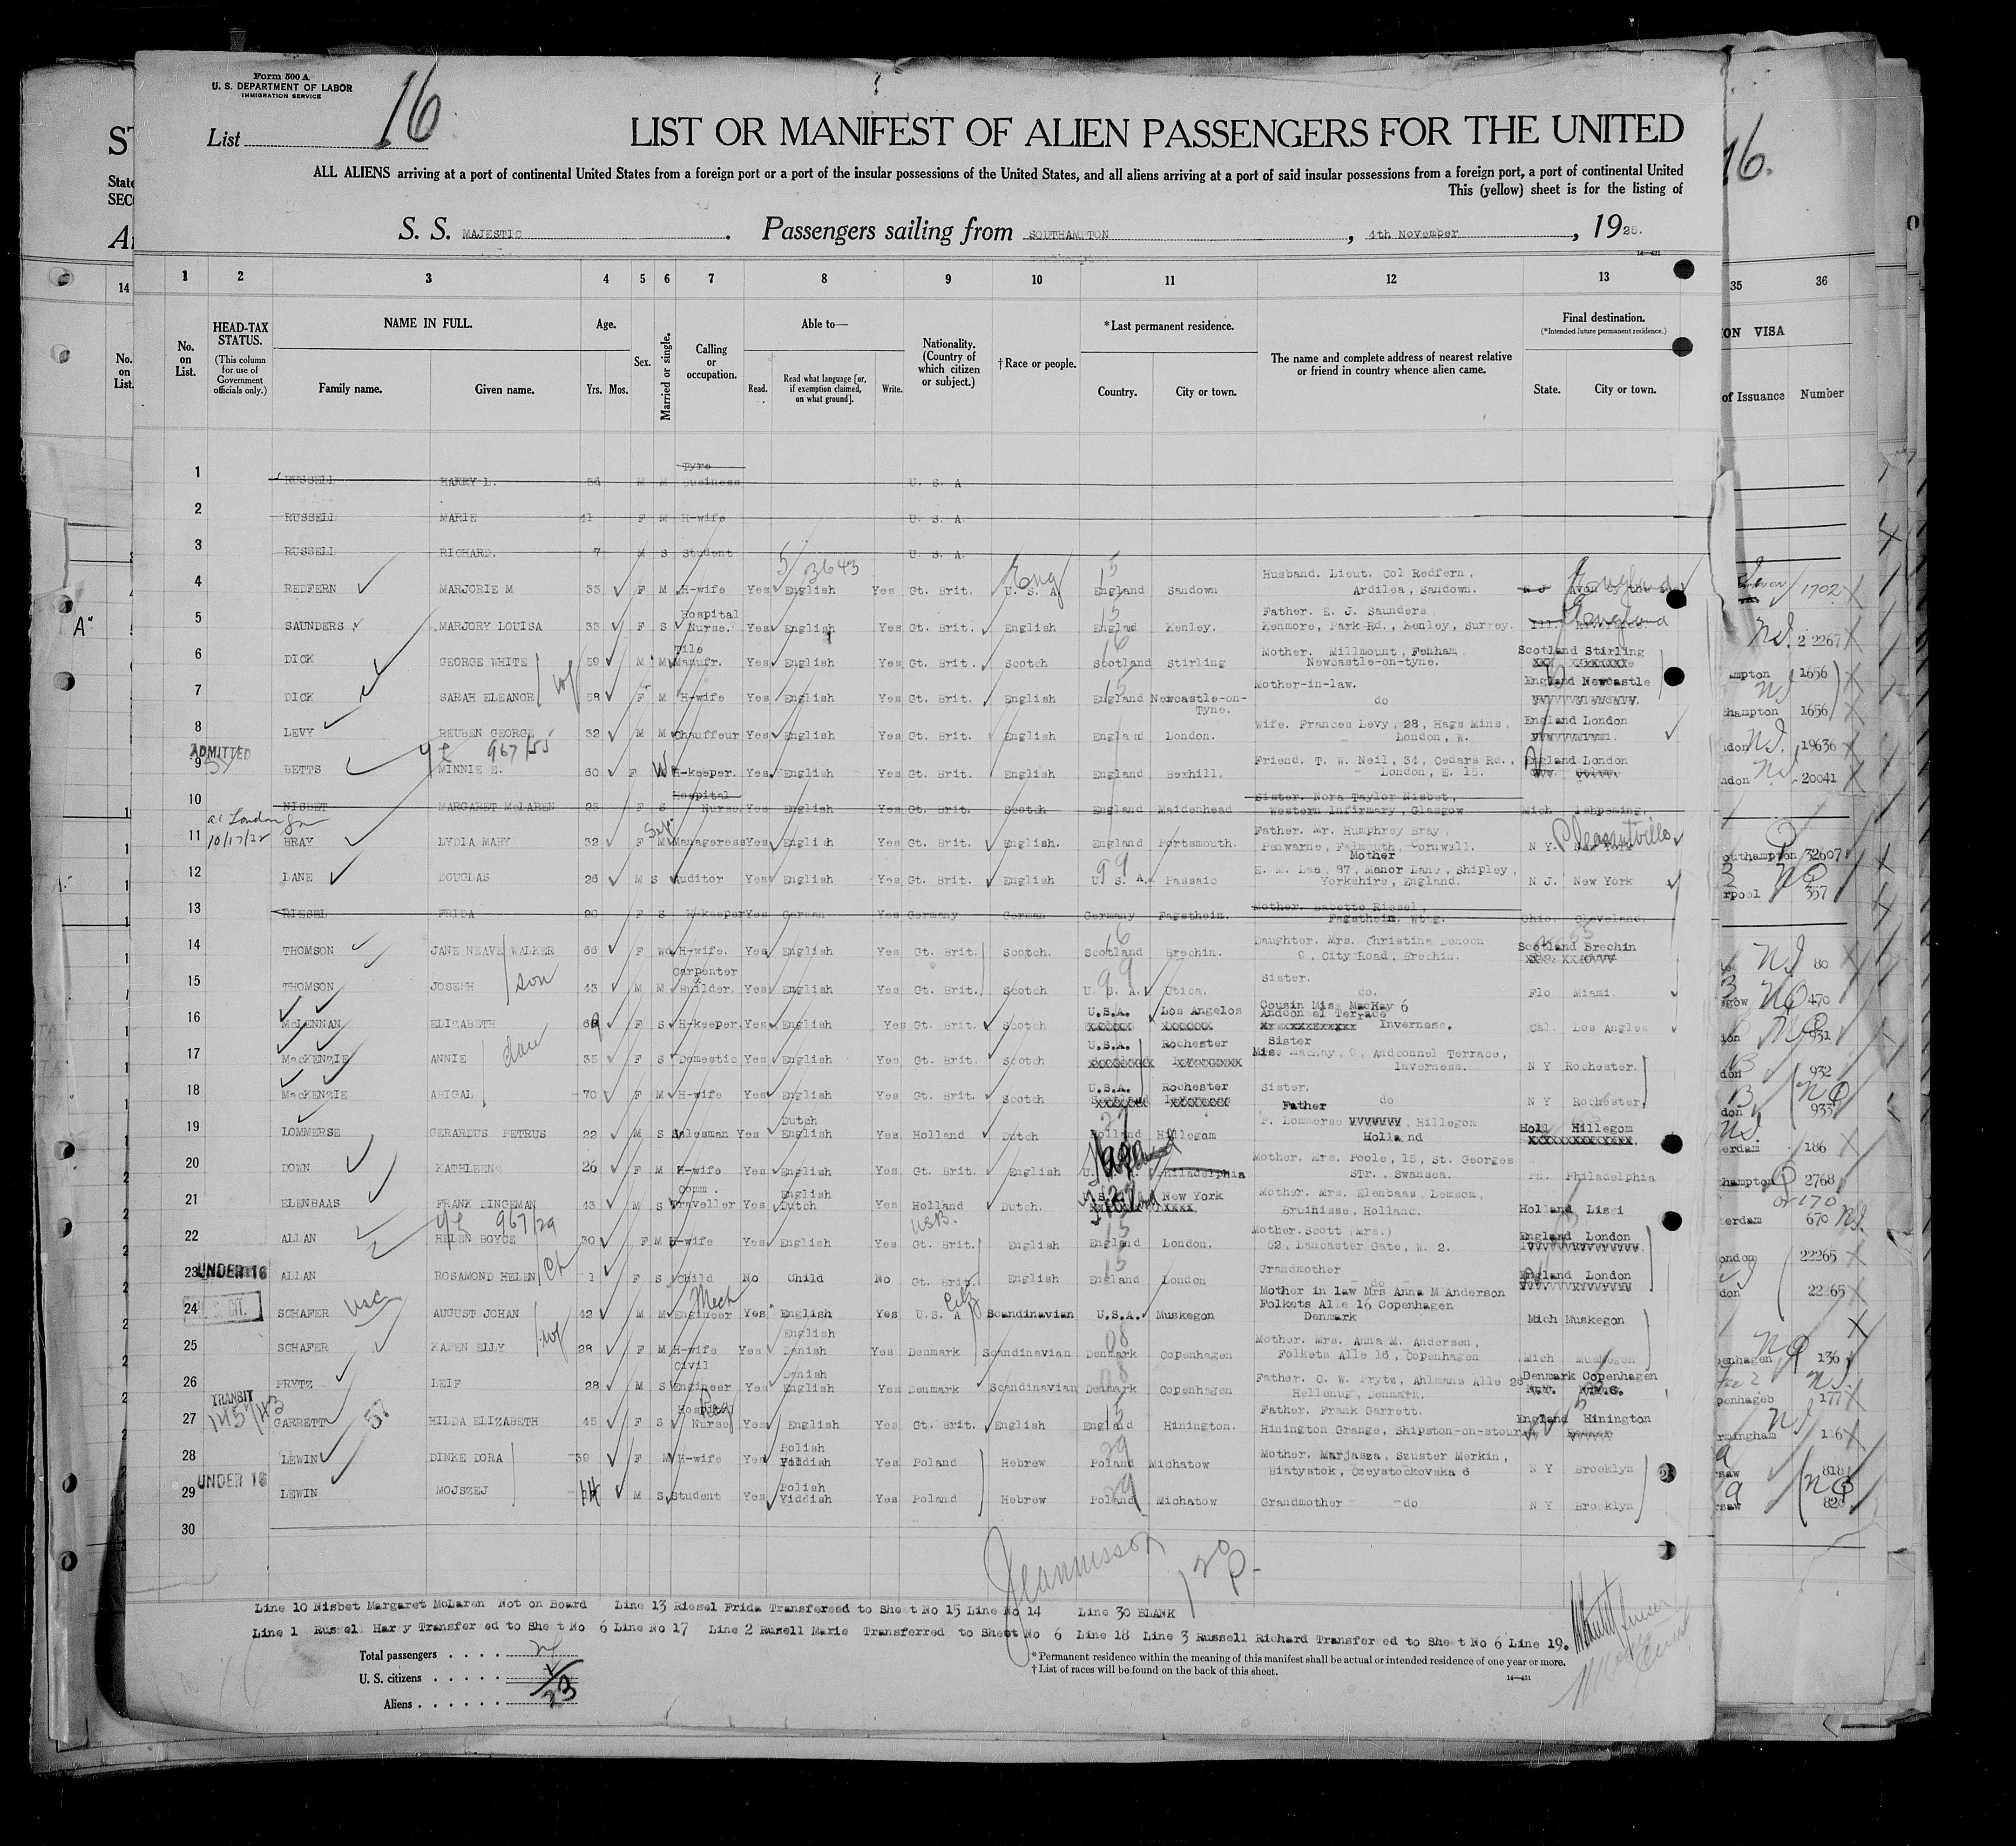 Form 500 A
U. S. DEPARTMENT OF LABOR
IMMIGRATION SERVICE
List 16
LIST OR MANIFEST OF ALIEN PASSENGERS FOR THE UNITED
ALL ALIENS arriving at a port of continental United States from a foreign port or a port of the insular possessions of the United States, and all aliens arriving at a port of said insular possessions from a foreign port, a port of continental United
This (yellow) sheet is for the listing of
S. S. MAJESTIC. Passengers sailing from SOUTHAMPTON, 4th November, 1925.
1 2 3 4 5 6 7 8 9 10 11 12 13
No. on List.
HEAD-TAX STATUS.
(This column for use of Government officials only.)
NAME IN FULL.
Family name. Given name.
Age.
Yrs. Mos.
Sex.
Married or single.
Calling or occupation.
Able to—
Read. Read what language [or, if exemption claimed, on what ground]. Write.
Nationality. (Country of which citizen or subject.)
†Race or people.
*Last permanent residence.
Country. City or town.
The name and complete address of nearest relative or friend in country whence alien came.
Final destination.
(*Intended future permanent residence.)
State. City or town.
35 36
ON VISA
of Issuance Number
1 RUSSELL HARRY L. M M Tyre Business U. S. A
2 RUSSELL MARIE 41 F M H-wife U. S. A.
3 RUSSELL RICHARD. 7 M S Student U. S. A.
5/3643
4 REDFERN MARJORIE M 33 F M H-wife Yes English Yes Gt. Brit. U. S. A Eng England Sandown Husband. Lieut. Col Redfern, Ardilea, Sandown. N J England 1702
5 SAUNDERS MARJORY LOUISA 33 F S Hospital Nurse. Yes English Yes Gt. Brit. English England Kenley. Father. E. J. Saunders Kenmore, Park-Rd., Kenley, Surrey. Ill. England 22267
6 DICK GEORGE WHITE 59 M M Tile Manufr. Yes English Yes Gt. Brit. Scotch Scotland Stirling Mother. Millmount, Fenham, Newcastle-on-tyne. Scotland Stirling 1656
7 DICK SARAH ELEANOR wf 58 F M H-wife Yes English Yes Gt. Brit. English England Newcastle-on-Tyne. Mother-in-law. do England Newcastle 1656
8 LEVY REUBEN GEORGE 32 M M Chauffeur Yes English Yes Gt. Brit. English England London. Wife. Frances Levy, 28, Hags Mins, London, W. England London 19636
ADMITTED
967/55
9 BETTS MINNIE E. 60 F W H-keeper. Yes English Yes Gt. Brit. English England Bexhill. Friend. T. W. Neil, 34, Cedars Rd., London, E. 15. England London 20041
10 NISBET MARGARET McLAREN 25 F S Hospital Nurse Yes English Yes Gt. Brit. Scotch England Maidenhead Sister. Nora Taylor Nisbet, Western Infirmary, Glasgow Mich Ishpeming.
London
10/17/32
11 BRAY LYDIA MARY 32 F M Sep. Manageress Yes English Yes Gt. Brit. English. England Portsmouth. Father. Mr. Humphrey Bray, Penwarne, Falmouth, Cornwall. N Y. New York Pleasantville 32607
12 LANE DOUGLAS 26 M S Auditor Yes English Yes Gt. Brit. English U. S. A. Passaic Mother E. M. Lan, 87, Manor Lane, Shipley, Yorkshire, England. N J. New York 357
13 RIESEL FRIDA 20 F S H-keeper Yes German Yes Germany German Germany Fagstheim. Mother. Babette Riesel, Fagstheim. Wbtg. Ohio. Cleveland.
14 THOMSON JANE NEAVE WALKER 66 F Wd H-wife. Yes English Yes Gt. Brit. Scotch. Scotland Brechin. Daughter. Mrs. Christina Denoon 9, City Road, Brechin. Scotland Brechin 80
15 THOMSON JOSEPH son 43 M M Carpenter & Builder. Yes English Yes Gt. Brit. Scotch U. S. A. Utica. Sister. do. Flo Miami. 470
16 McLENNAN ELIZABETH F S H-keeper. Yes English Yes Gt Brit. Scotch U.S.A. Los Angelos Cousin Miss MacKay 6 Andconnel Terrace Inverness. Cal. Los Angles 931
17 MacKENZIE ANNIE dau 35 F S Domestic Yes English Yes Gt. Brit. Scotch U.S.A. Rochester Sister Miss MacKay, 9, Andconnel Terrace, Inverness. N Y Rochester. 932
18 MacKENZIE ABIGAL 70 F M H-wife Yes English Yes Gt. Brit. Scotch U.S.A. Rochester Sister. do N Y Rochester, 933
19 LOMMERSE GERARDUS PETRUS 22 M S Salesman Yes Dutch English Yes Holland Dutch Holland Hillegom Father P. Lommerse, Hillegom Holland Holl Hillegom 186
20 DOWN KATHLEEN 26 F M H-wife Yes English Yes Gt. Brit. English Philadelphia Mother. Mrs. Poole, 15, St. Georges STr., Swansea. Pa. Philadelphia 2768
21 ELENBAAS FRANK DINGEMAN 43 M S Comm. Traveller Yes English Dutch Yes Holland Dutch. U.S.A. New York Mother. Mrs. Elenbaas, Lemson, Bruinisse, Holland. Holland Lissi 670
967/29
22 ALLAN HELEN BOYCE 30 F M H-wife Yes English Yes Gt. Brit. English England London. Mother. Scott (Mrs.) 62, Lancaster Gate, W. 2. England London 22265
UNDER 16
23 ALLAN ROSAMOND HELEN Ch 1 F S Child No Child No Gt. Brit. English England London Grandmother - do - England London 22265
24 SCHAFER USC AUGUST JOHAN 42 M M Mech Engineer Yes English Yes U.S. A Citz Scandinavian U.S.A. Muskegon Mother in law Mrs Anna M Anderson Folkets Alle 16 Copenhagen Denmark Mich Muskegon
25 SCHAFER KAREN ELLY wf 28 F M H-wife Yes English Danish Yes Denmark Scandinavian Denmark Copenhagen Mother. Mrs. Anna M. Andersen, Folkets Alle 16, Copenhagen Mich Muskegon 136
26 PRYTZ LEIF 28 M S Civil Engineer Yes Danish English Yes Denmark Scandinavian Denmark Copenhagen Father. C. W. Prytz, Ahlmans Alle 26 Hellenup, Denmark. Denmark Copenhagen 177
TRANSIT
27 GARRETT HILDA ELIZABETH 45 F S Hospital Nurse Yes English Yes Gt. Brit. English England Hinington. Father. Frank Garrett. Hinington Grange, Shipston-on-stour England Hinington 116
28 LEWIN DINKE DORA 39 F M H-wife Yes Polish Yiddish Yes Poland Hebrew Poland Michatow Mother. Marjasza, Szuster Merkin, Biatystok, Czeystockovska 6 N Y Brooklyn 818
UNDER 16
29 LEWIN MOJSZEJ M S Student Yes Polish Yiddish Yes Poland Hebrew Poland Michatow Grandmother - do N Y Brooklyn 820
30
Line 10 Nisbet Margaret McLaren Not on Board Line 13 Riesel Frida Transfereed to Sheet No 15 Line No 14 Line 30 BLANK
Line 1 Russell Harry Transferred to Sheet No 6 Line No 17 Line 2 Rusell Marie Transferred to Sheet No 6 Line 18 Line 3 Russell Richard Transferred to Sheet No 6 Line 19.
Total passengers
U. S. citizens
Aliens
* Permanent residence within the meaning of this manifest shall be actual or intended residence of one year or more.
† List of races will be found on the back of this sheet.
14—431